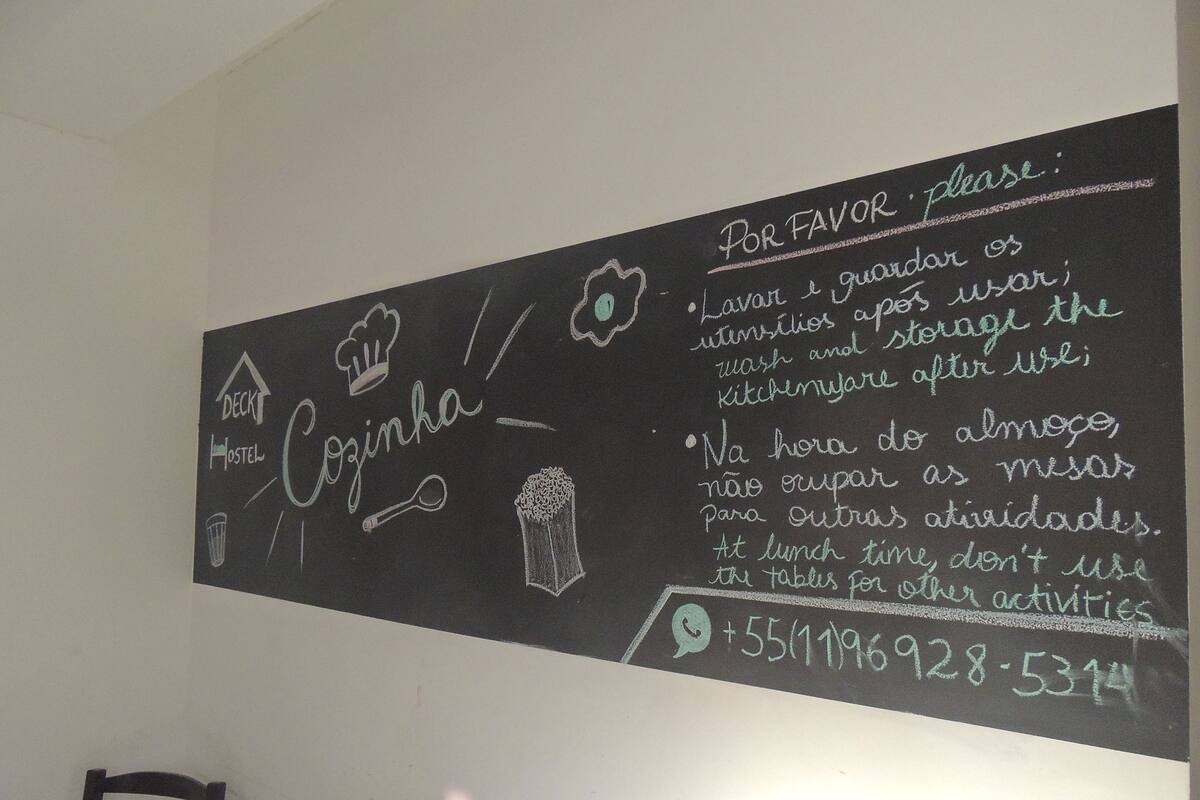 DECK
HOSTEL
Cozinha
POR FAVOR · please:
• Lavar e guardar os
utensílios após usar;
wash and storage the
kitchenware after use;
• Na hora do almoço,
não ocupar as mesas
para outras atividades.
At lunch time, don't use
the tables for other activities
+55(11)96928-5314